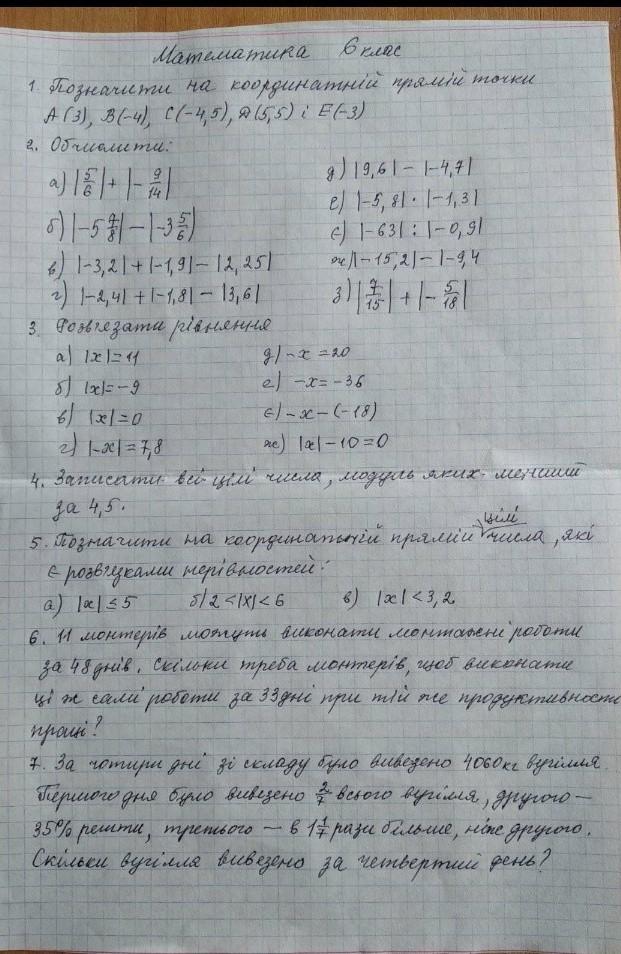 Математика 6 клас
1. Позначити на координатній прямій точки
A(3), B(-4), C(-4,5), D(5,5) і E(-3)
2. Обчислити:
а) |5/6| + |-9/14|
б) |-5 7/8| - |-3 5/6|
в) |-3,2| + |-1,9| - |2,25|
г) |-2,4| + |-1,8| - |3,6|
д) |9,6| - |-4,7|
е) |-5,8| · |-1,3|
є) |-63| : |-0,9|
ж) |-15,2| - |-9,4
з) |7/15| + |-5/18|
3. Розв'язати рівняння
а) |x|=11
б) |x|=-9
в) |x|=0
г) |-x|=7,8
д) -x=20
е) -x=-36
є) -x-(-18)
ж) |x|-10=0
4. Записати всі цілі числа, модуль яких менший
за 4,5.
5. Позначити на координатній прямій цілі числа, які
є розв'язками нерівностей:
а) |x| ≤ 5 б) 2<|x|<6 в) |x|<3,2
6. 11 монтерів можуть виконати монтажні роботи
за 48 днів. Скільки треба монтерів, щоб виконати
ці ж самі роботи за 33 дні при тій же продуктивності
праці?
7. За чотири дні зі складу було вивезено 4060 кг вугілля.
Першого дня було вивезено 2/7 всього вугілля, другого —
35% решти, третього — в 1 1/7 рази більше, ніж другого.
Скільки вугілля вивезено за четвертий день?